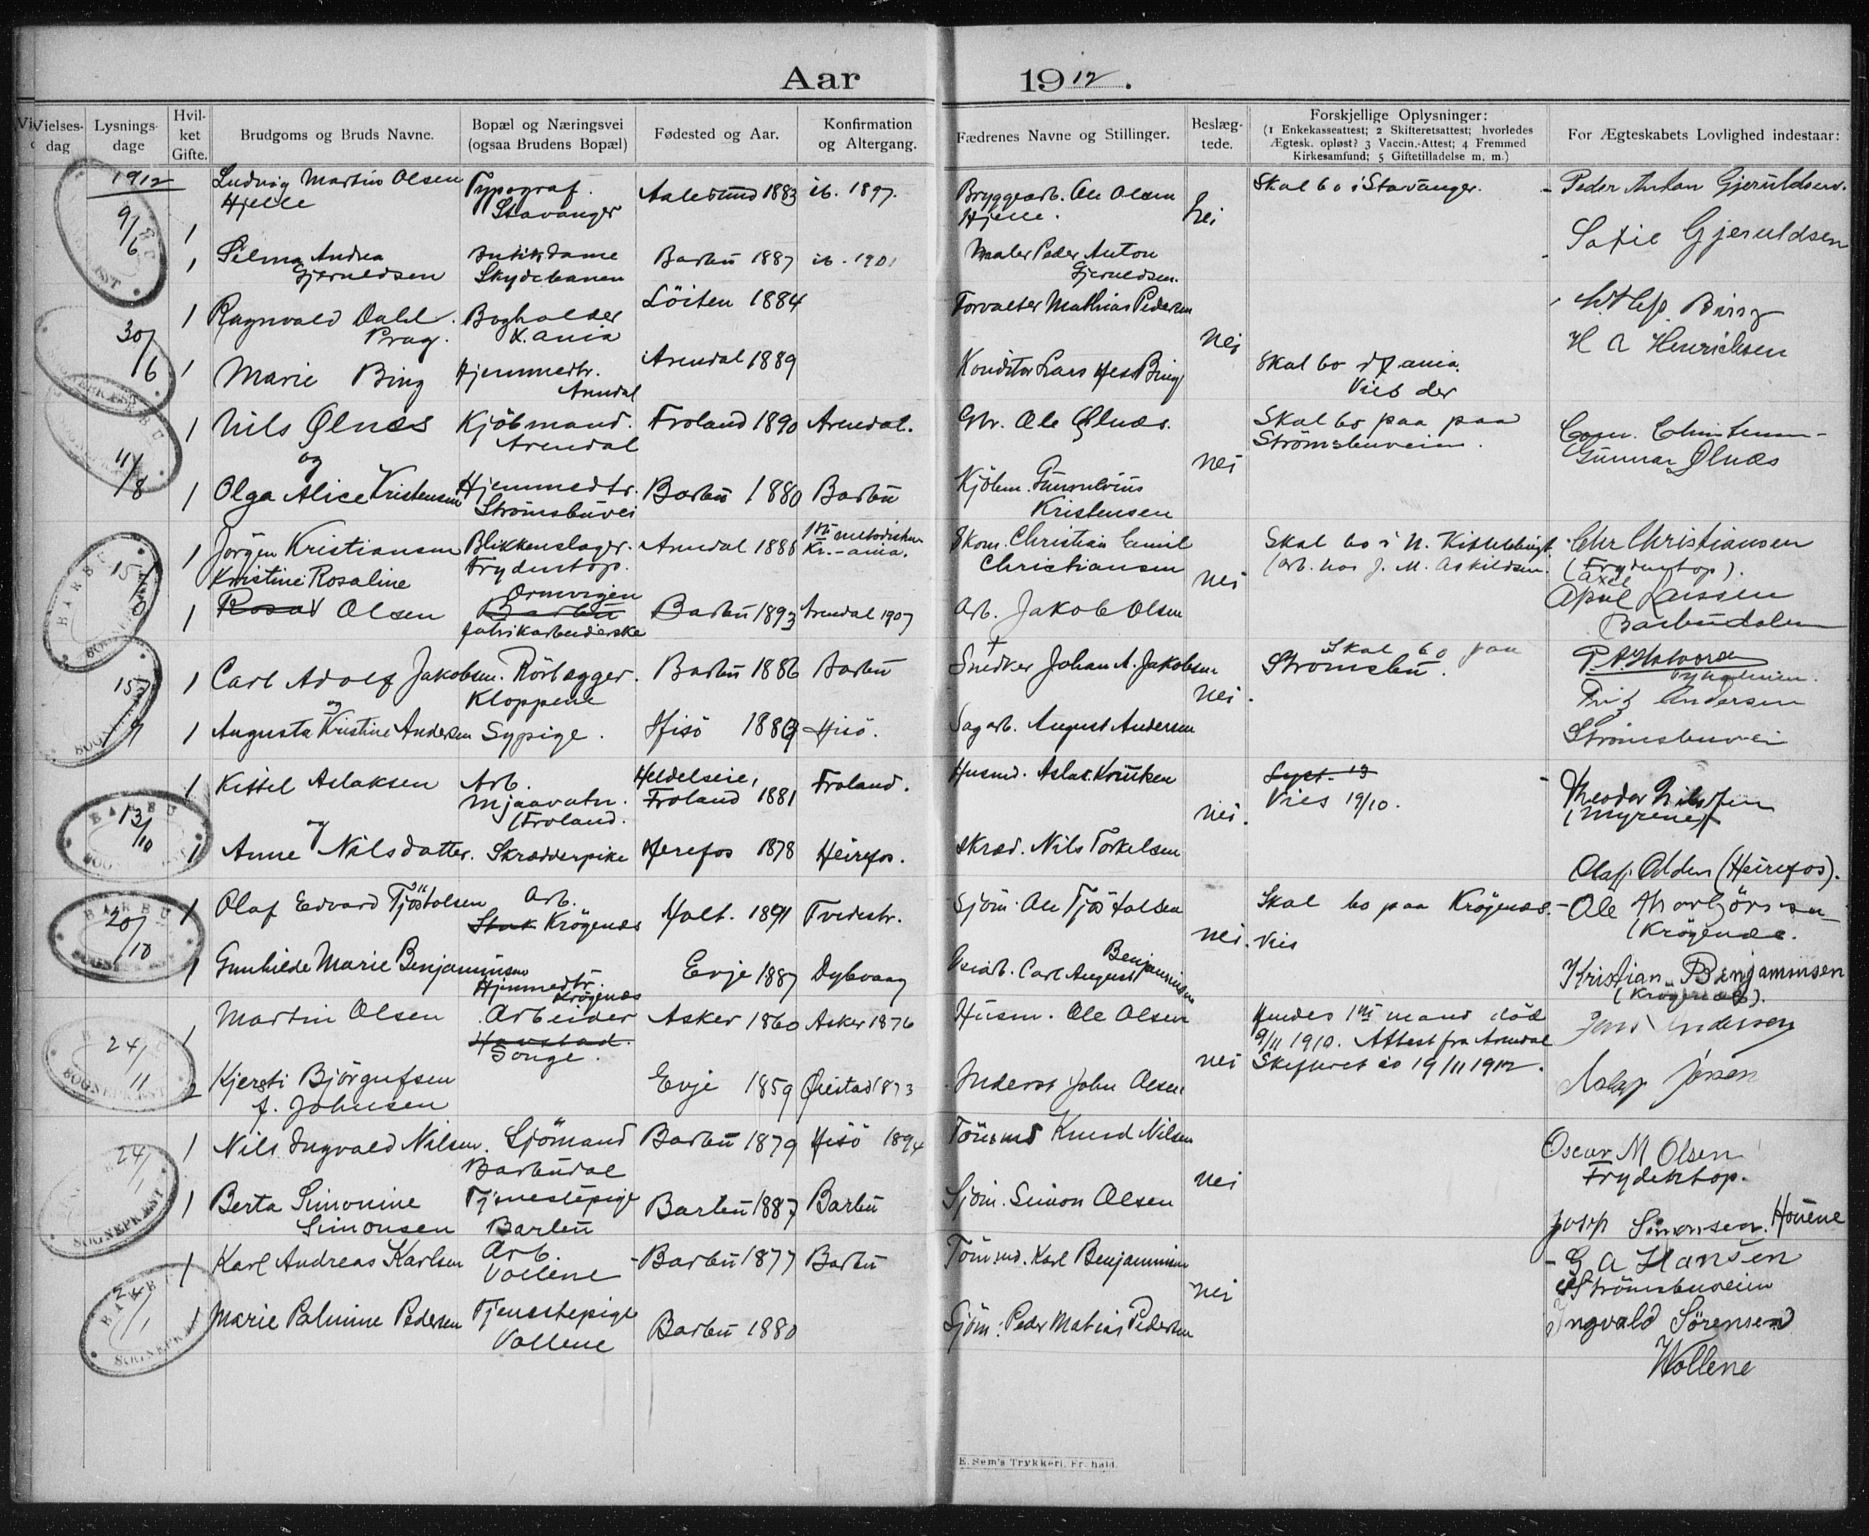 Aar 1912.
Vielses-dag
Lysnings-dage
Hvil-ket Gifte.
Brudgoms og Bruds Navne.
Bopæl og Næringsvei (ogsaa Brudens Bopæl)
Fødested og Aar.
Konfirmation og Altergang.
Fædrenes Navne og Stillinger.
Beslæg-tede.
Forskjellige Oplysninger:
(1 Enkekasseattest; 2 Skifteretsattest; hvorledes
Ægtesk. opløst? 3 Vaccin.-Attest; 4 Fremmed
Kirkesamfund; 5 Giftetilladelse m. m.)
For Ægteskabets Lovlighed indestaar:
1912
9/6
1 Ludvig Martin Olsen Hjelle
Typograf. Stavanger
Aalesund 1883
ib. 1897.
Bryggearb. Ole Olsen Hjelle.
nei
Skal bo i Stavanger.
Peder Anton Gjeruldsen.
1 Selma Andrea Gjeruldsen
Butikdame Skydebanen
Barbu 1887
ib. 1901
Maler Peder Anton Gjeruldsen.
Sofie Gjeruldsen
30/6
1 Ragnvald Dahl Prag.
Bogholder X.ania
Löiten 1884
Forvalter Mathias Pedersen
nei
Bing
1 Marie Bing
Hjemmedtr. Arendal
Arendal 1889
Konditor Lars Hess Bing
Skal bo i Xania.
Vies der
H A Henrichsen
11/8
1 Nils Ølnæs
og
Kjöbmand. Arendal
Froland 1890
Arendal.
Gbr. Ole Ølnæs.
nei
Skal bo paa paa
Strömsbuveien.
1 Olga Alice Kristensen
Hjemmedtr. Strömsbuvei
Barbu 1880
Barbu
Kjöbm. Kristensen
Gunnar Ølnæs
15/
1 Jörgen Kristiansen
Blikkenslager. Frydentop.
Arendal 1888
Kr.-ania.
Skom. Christian Emil Christiansen
nei
Skal bo i N.
(arb. hos J. M. Askildsen.
Chr Christiansen
(Frydentop).
Kristine Rosaline
1 Rosa Olsen
Ormvigen
Barbu
fabrikarbeiderske
Barbu 1893
Arendal 1907
Arb. Jakob Olsen
Axel
Barbudalen
15/9
1 Carl Adolf Jakobsen.
og
Rörlægger. Kloppene
Barbu 1886
Barbu
Snedker Johan A. Jakobsen
nei.
Skal bo paa
Strömsbu.
1 Augusta Kristine Andersen
Sypige.
Hisö 1889
Hisö.
Sagarb. August Andersen
Andersen
Strömsbuvei
13/10
1 Kittel Aslaksen
og
Arb. Mjaavatn. (Froland.
Heldelseie, Froland 1881
Froland.
Husmd. Aslak Knutsen
nei.
Vies 19/10.
Theodor Nilsen
(Myrene)
1 Anne Nilsdatter.
Skrædderpike
Herefos 1878
Heirefos.
Skræd. Nils Torkelsen
Olaf Olden (Heirefos).
20/10
1 Olaf Edvard Tjöstolsen
Arb. Krögenæs
Holt. 1891
Tvedestr.
Sjöm. Ole Tjöstolsen
nei.
Skal bo paa Krögenæs.
Vies
Ole Thorbjörnsen
(Krögenæs.
1 Gunhilde Marie Benjaminsen
Hjemmedtr. Krögenæs
Evje 1887
Dybvaag
Carl August Benjaminsen
Kristian Benjaminsen
(Krögenæs).
24/11
1 Martin Olsen
Arbeider
Havstad.
Songe.
Asker 1860
Asker 1876
Husm. Ole Olsen
nei
Hendes 1ste mand död
9/11 1910. Attest fra Arendal
Skifteret do 19/11 1912.
Jens Andersen
2 Kjersti Björgufsen
f. Johnsen
Evje 1859
Øiestad 1873
Inderst John Olsen
Jensen
24/1
1 Nils Ingvald Nilsen.
Sjömand Barbudal
Barbu 1879
Hisö 1894
Tömmd Knud Nilsen
nei
Oscar M Olsen
Frydentop.
1 Berta Simonine Simonsen
Tjenestepige Barbu
Barbu 1887
Barbu
Sjöm. Simon Olsen
Josep Simonsen. Houene
1 Karl Andreas Karlsen
Arb. Vollene
Barbu 1877
Barbu
Tömmd. Karl Benjaminsen
nei
G A Hansen
Strömsbuveien
1 Marie Palmine Pedersen
Tjenestepige Vollene
Barbu 1880
Sjöm. Peder Matias Pedersen
Ingvald Sörensen
Wollene
BARBU SOGNEPRÆST
E. Sem's Trykkeri, Fr. hald.